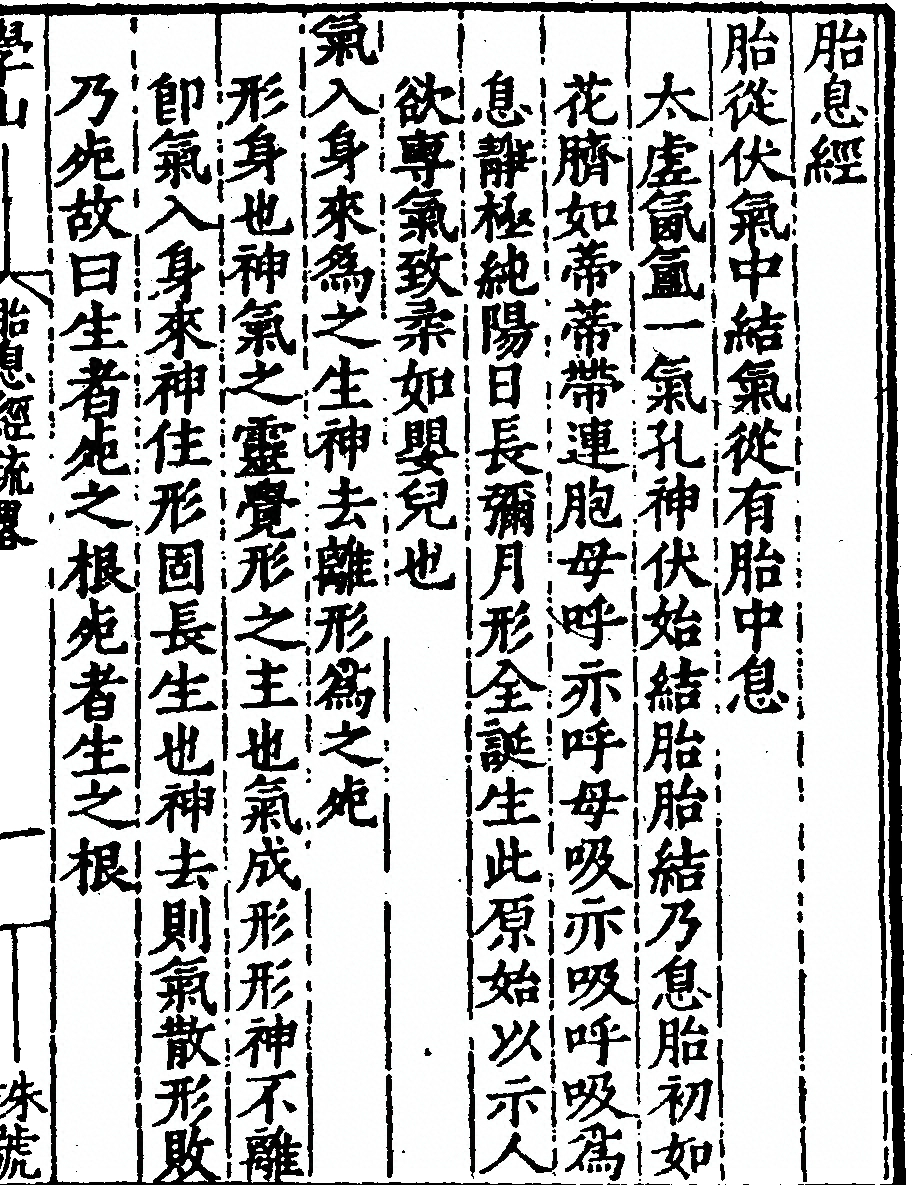 胎息經
胎從伏氣中結氣從有胎中息
太虗氤氳一氣孔神伏始結胎胎結乃息胎初如
花臍如蒂蒂帶連胞母呼亦呼母吸亦吸呼吸爲
息靜極純陽日長彌月形全誕生此原始以示人
欲專氣致柔如嬰兒也
氣入身來爲之生神去離形爲之𣦸
形身也神氣之靈覺形之主也氣成形形神不離
卽氣入身來神住形固長生也神去則氣散形敗
乃𣦸故曰生者𣦸之根𣦸者生之根
胎息經疏畧
一
珠號